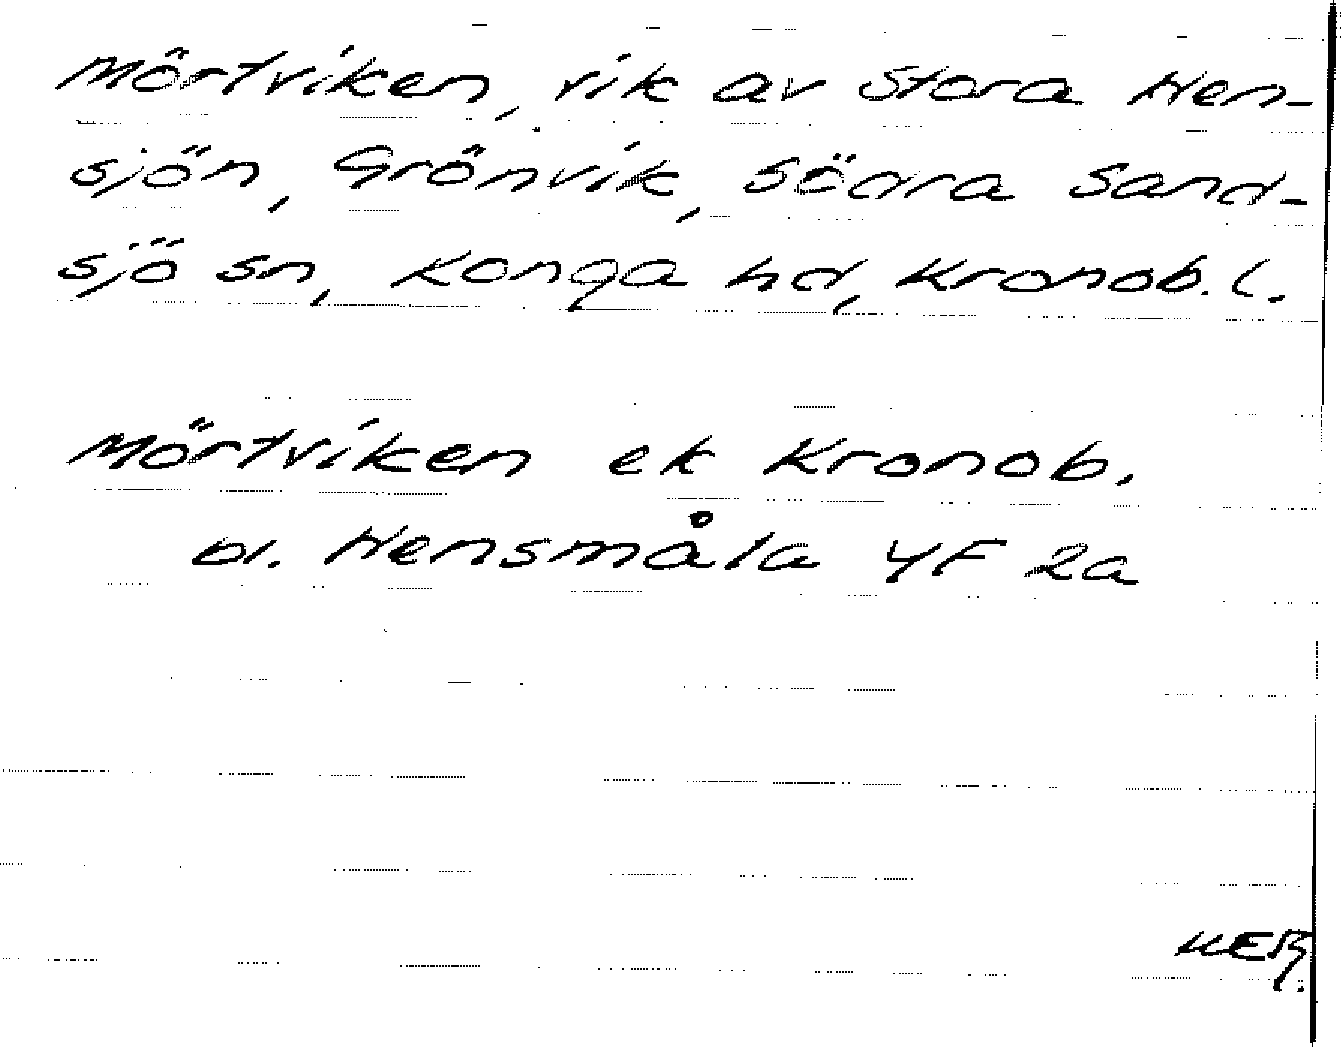 Mörtviken, vik av Stora Hen-
sjön, Grönvik, Södra Sand-
sjö sn, Konga hd, Kronob. l.
Mörtviken ek Kronob.
bl. Hensmåla 4F 2a